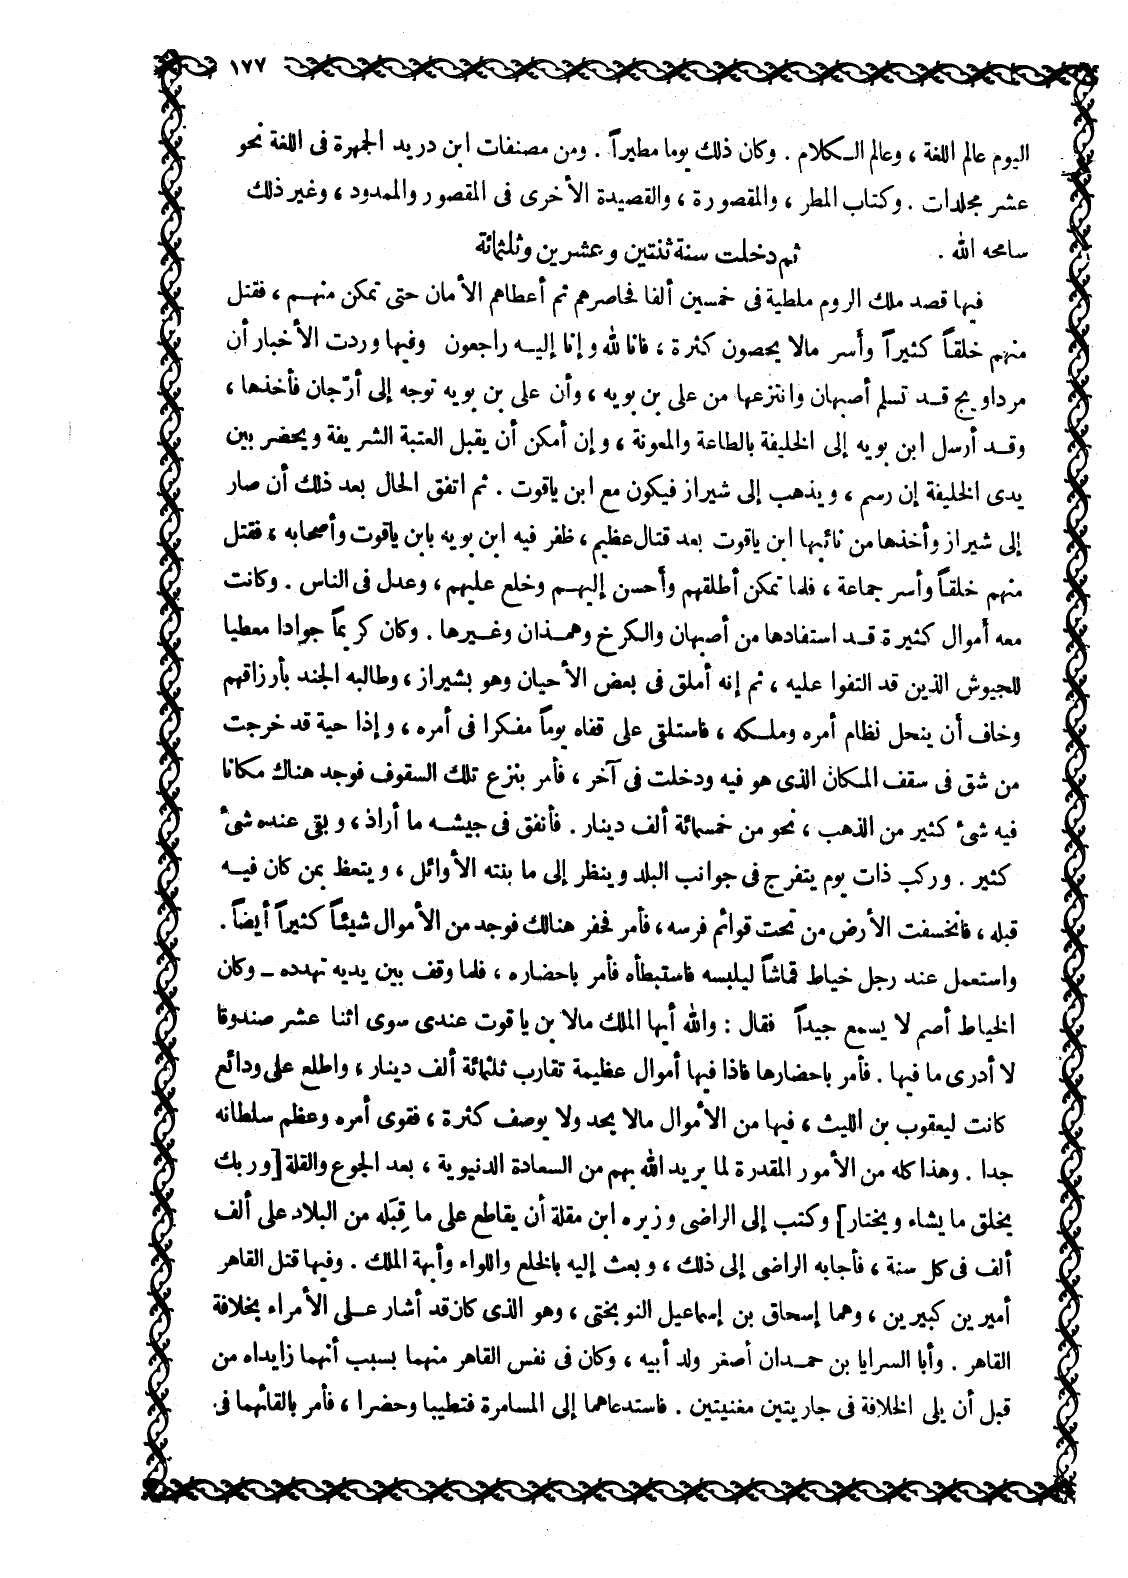 ١٧٧
اليوم عالم اللغة ، وعالم الكلام . وكان ذلك يوما مطيراً . ومن مصنفات ابن دريد الجمهرة فى اللغة نحو
عشر مجلدات . وكتاب المطر ، والمقصورة ، والقصيدة الأخرى فى المقصور والممدود ، وغير ذلك
سامحه الله .
ثم دخلت سنة ثنتين وعشرين وثلثمائة
فيها قصد ملك الروم ملطية فى خمسين ألفا فحاصرهم ثم أعطاهم الأمان حتى تمكن منهم ، فقتل
منهم خلقاً كثيراً وأسر مالا يحصون كثرة ، فانا لله وإنا إليه راجعون وفيها وردت الأخبار أن
مرداويج قد تسلم أصبهان وانتزعها من على بن بويه ، وأن على بن بويه توجه إلى أرّجان فأخذها ،
وقد أرسل ابن بويه إلى الخليفة بالطاعة والمعونة ، وإن أمكن أن يقبل العتبة الشريفة ويحضر بين
يدى الخليفة إن رسم ، ويذهب إلى شيراز فيكون مع ابن ياقوت . ثم اتفق الحال بعد ذلك أن صار
إلى شيراز وأخذها من نائبها ابن ياقوت بعد قتال عظيم ، ظفر فيه ابن بويه بابن ياقوت وأصحابه ، فقتل
منهم خلقاً وأسر جماعة ، فلما تمكن أطلقهم وأحسن إليهم وخلع عليهم ، وعدل فى الناس . وكانت
معه أموال كثيرة قد استفادها من أصبهان والكرخ وهمذان وغيرها . وكان كريماً جوادا معطيا
للجيوش الذين قد التفوا عليه ، ثم إنه أملق فى بعض الأحيان وهو بشيراز ، وطالبه الجند بأرزاقهم
وخاف أن ينحل نظام أمره وملكه ، فاستلقى على قفاه يوماً مفكرا فى أمره ، وإذا حية قد خرجت
من شق فى سقف المكان الذى هو فيه ودخلت فى آخر ، فأمر بنزع تلك السقوف فوجد هناك مكانا
فيه شئ كثير من الذهب ، نحو من خمسمائة ألف دينار . فأنفق فى جيشه ما أراد ، وبقى عنده شئ
كثير . وركب ذات يوم يتفرج فى جوانب البلد وينظر إلى ما بنته الأوائل ، ويتعظ بمن كان فيه
قبله ، فانخسفت الأرض من تحت قوائم فرسه ، فأمر فحفر هنالك فوجد من الأموال شيئاً كثيراً أيضاً .
واستعمل عند رجل خياط قماشاً ليلبسه فاستبطأه فأمر باحضاره ، فلما وقف بين يديه تهدده – وكان
الخياط أصم لا يسمع جيداً فقال : والله أيها الملك مالا بن ياقوت عندى سوى اثنا عشر صندوقا
لا أدرى ما فيها . فأمر باحضارها فاذا فيها أموال عظيمة تقارب ثلثمائة ألف دينار ، واطلع على ودائع
كانت ليعقوب بن الليث ، فيها من الأموال مالا يحد ولا يوصف كثرة ، فقوى أمره وعظم سلطانه
جدا . وهذا كله من الأمور المقدرة لما يريد الله بهم من السعادة الدنيوية ، بعد الجوع والقلة [وربك
يخلق ما يشاء ويختار] وكتب إلى الراضى وزيره ابن مقلة أن يقاطع على ما قِبَله من البلاد على ألف
ألف فى كل سنة ، فأجابه الراضى إلى ذلك ، وبعث إليه بالخلع واللواء وأبهة الملك . وفيها قتل القاهر
أميرين كبيرين ، وهما إسحاق بن إسماعيل النوبختى ، وهو الذى كان قد أشار على الأمراء بخلافة
القاهر . وأبا السرايا بن حمدان أصغر ولد أبيه ، وكان فى نفس القاهر منهما بسبب أنهما زايداه من
قبل أن يلى الخلافة فى جاريتين مغنيتين . فاستدعاهما إلى المسامرة فتطيبا وحضرا ، فأمر بالقائهما فى